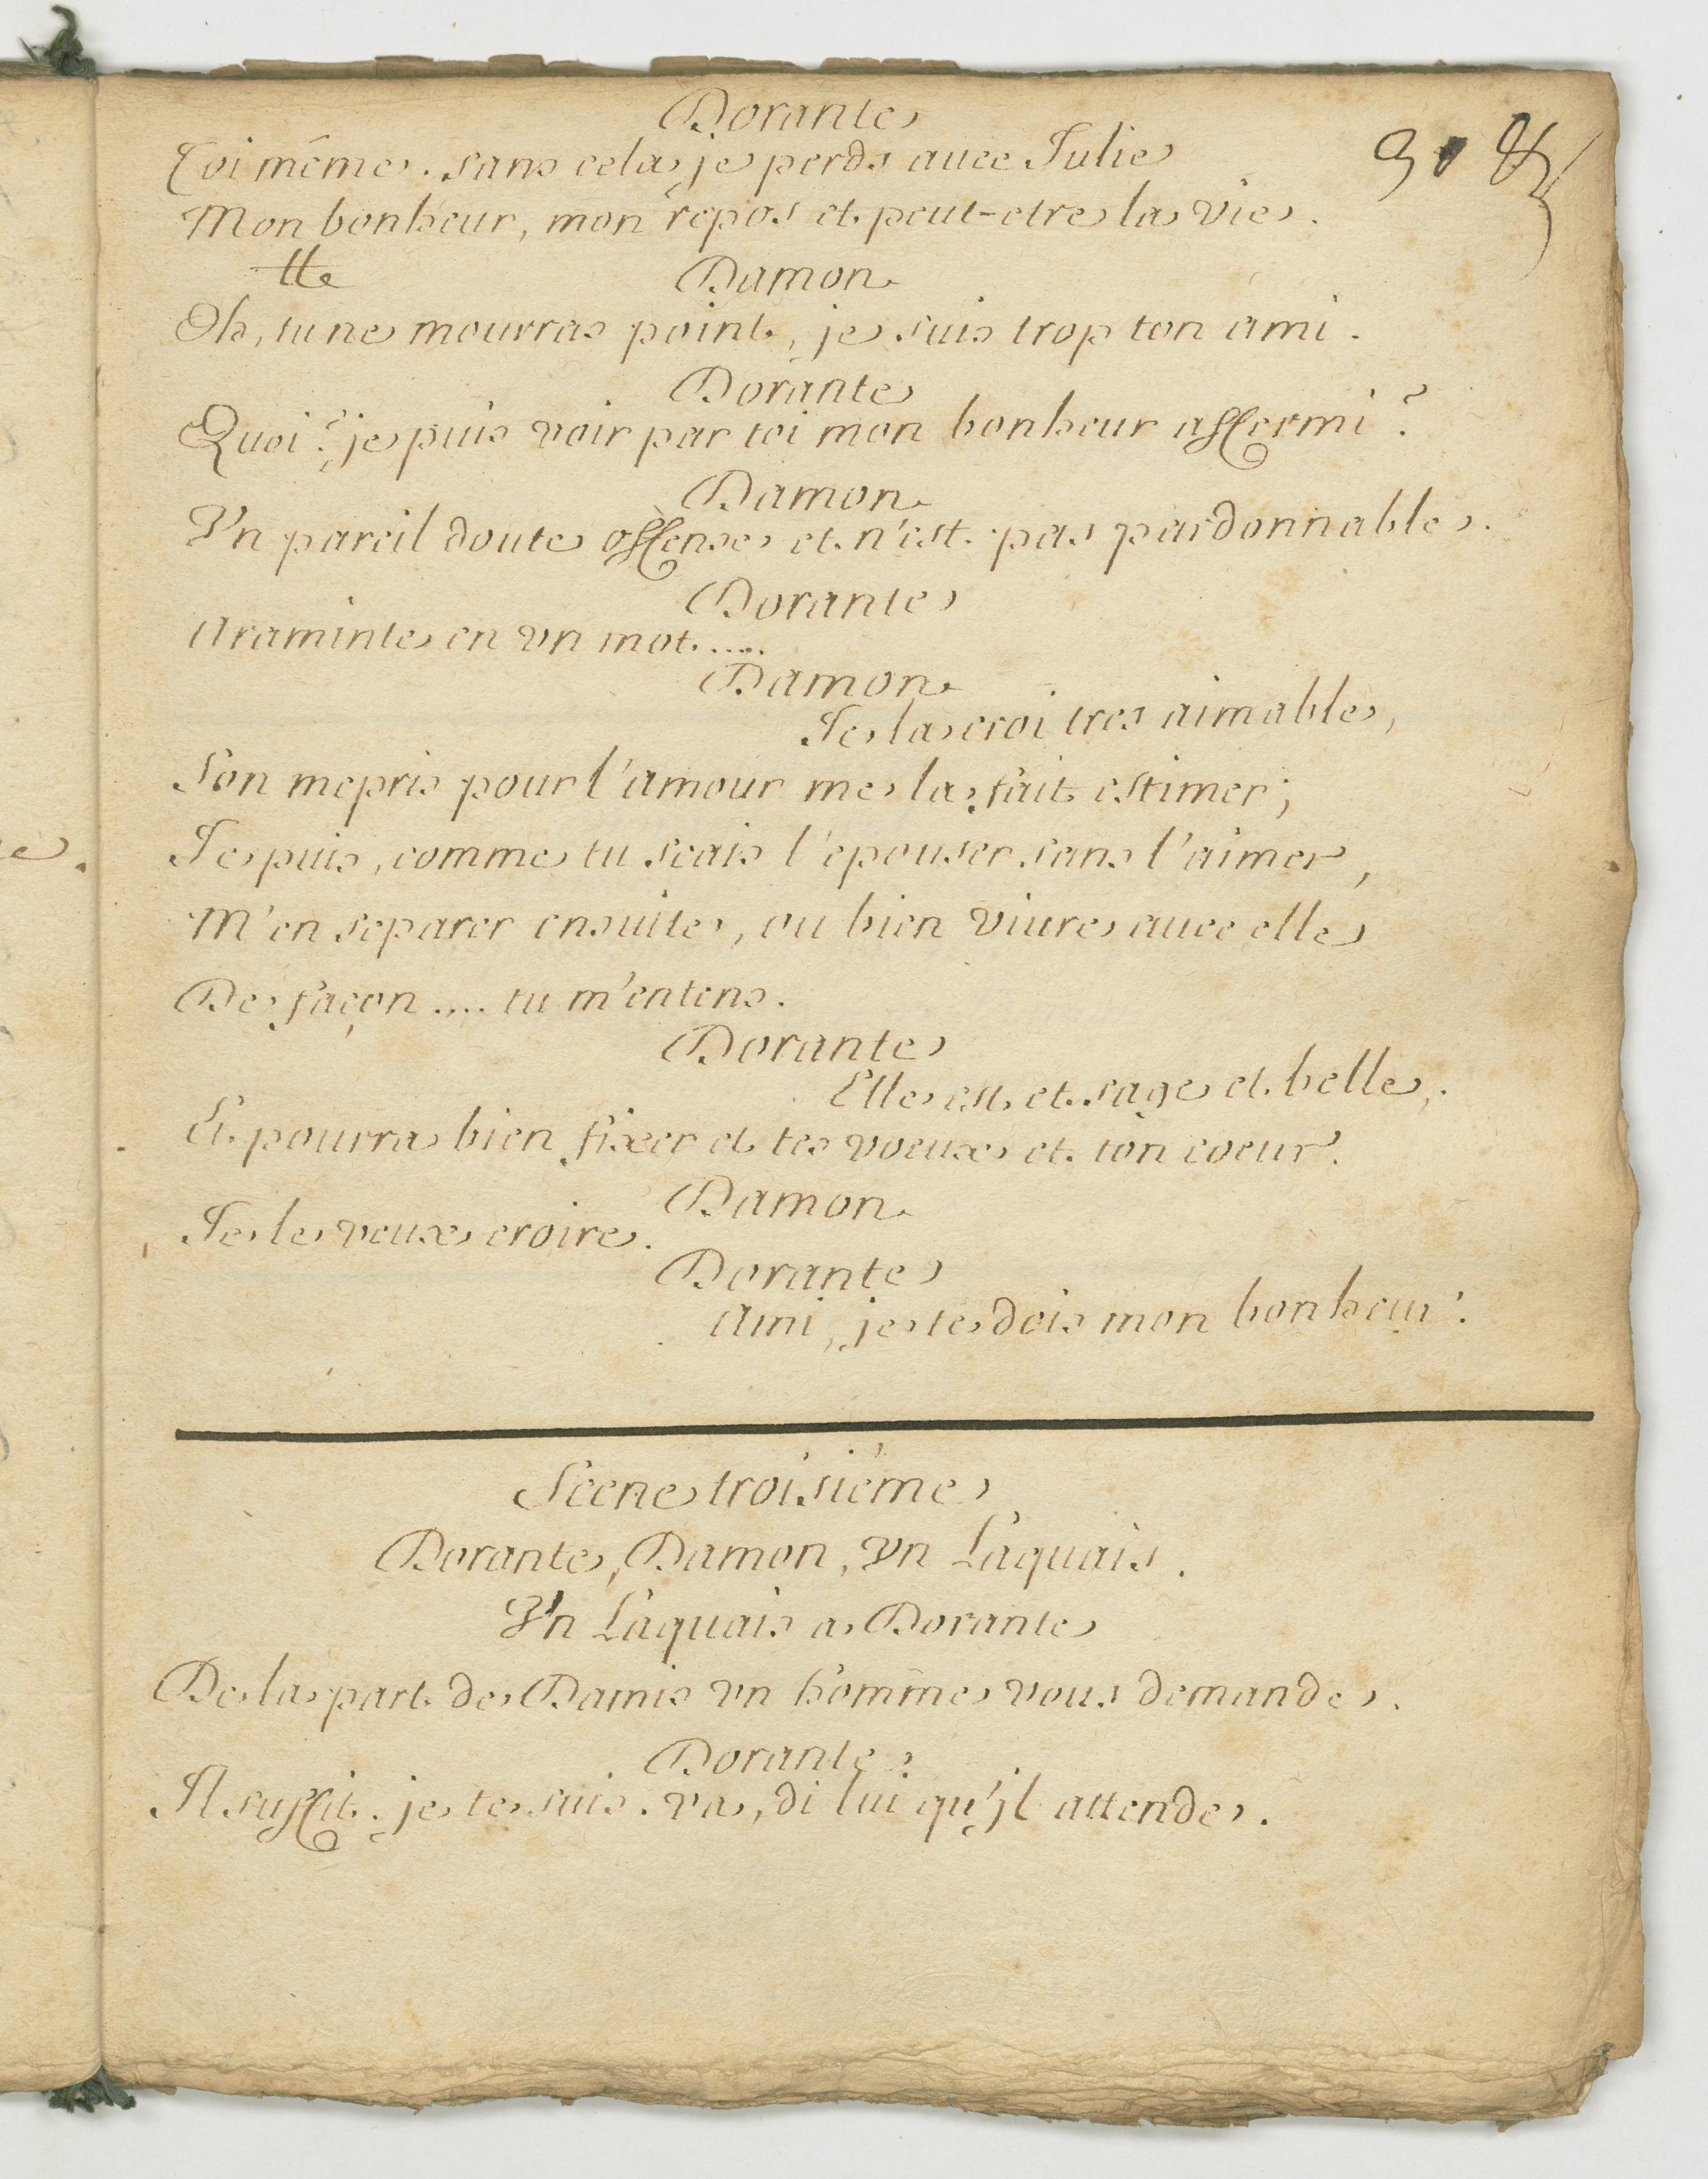 Dorante
Toi même. sans cela, je perds auec Julie
Mon bonheur, mon repos et peut-etre la vie.
Damon
Oh, tu ne mourras point, je suis trop ton ami.
Dorante
Quoi? je puis voir par toi mon bonheur affermi?
Damon
Vn pareil doute offense et n'est pas pardonnable.
Dorante
Araminte en vn mot.....
Damon
Je la croi tres aimable,
Son mepris pour l'amour me la fait estimer;
Je puis, comme tu scais l'epouser sans l'aimer,
M'en separer ensuite, ou bien viure auec elle
De façon .... tu m'entens.
Dorante
Elle est et sage et belle,
Et pourra bien fixer et tes voeux et ton coeur.
Damon
Je le veux croire.
Dorante
Ami, je te dois mon bonheur.
Scene troisiéme
Dorante, Damon, Vn Laquais.
Vn Laquais a Dorante
De la part de Damis vn homme vous demande.
Dorante
Il suffit. je te suis. va, di lui qu'jl attende.